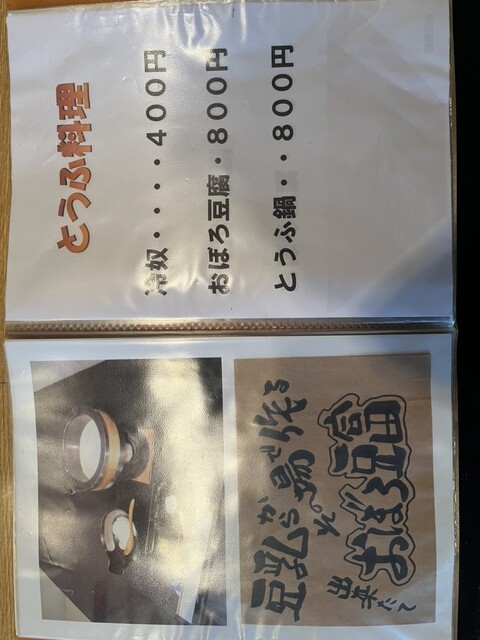 とうふ料理
冷奴・・・・・４００円
おぼろ豆腐・８００円
とうふ鍋・・８００円
豆乳から
その場で作る
出来たて
おぼろ豆富